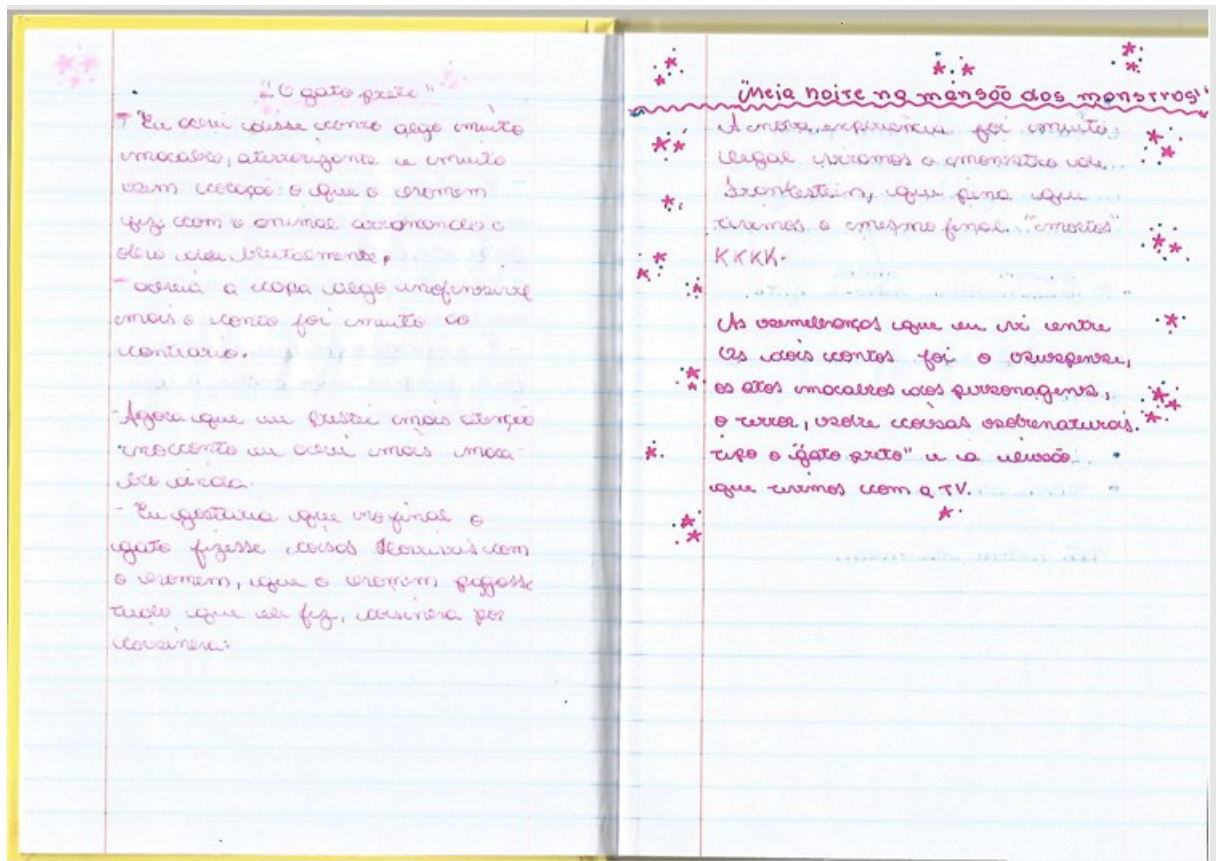 "O gato preto"
- Eu achei desse conto algo muito
macabro, aterrorizante e muito
sem coração o que o homem
fez com o animal arrancando o
olho dele brutalmente.
- achei a capa algo inofensivel
mais o conto foi muito ao
contrario.
- Agora que eu prestei mais atenção
no conto eu achei mais maca-
bro ainda.
- Eu gostaria que no final o
gato fizesse coisas Horriveis com
o homem, que o homem pagasse
tudo que ele fez, coisinha por
coisinha.
"Meia noite na mansão dos monstros"
A nossa experiencia foi muito
legal viramos o monstro de
Frankestein, que pena que
tivemos o mesmo final "mortos"
KKKK.
As semelhanças que eu vi entre
os dois contos foi o suspense,
os atos macabros dos personagens,
o terror, sobre coisas sobrenaturais.
tipo o "gato preto" e a
que tivemos com a TV.